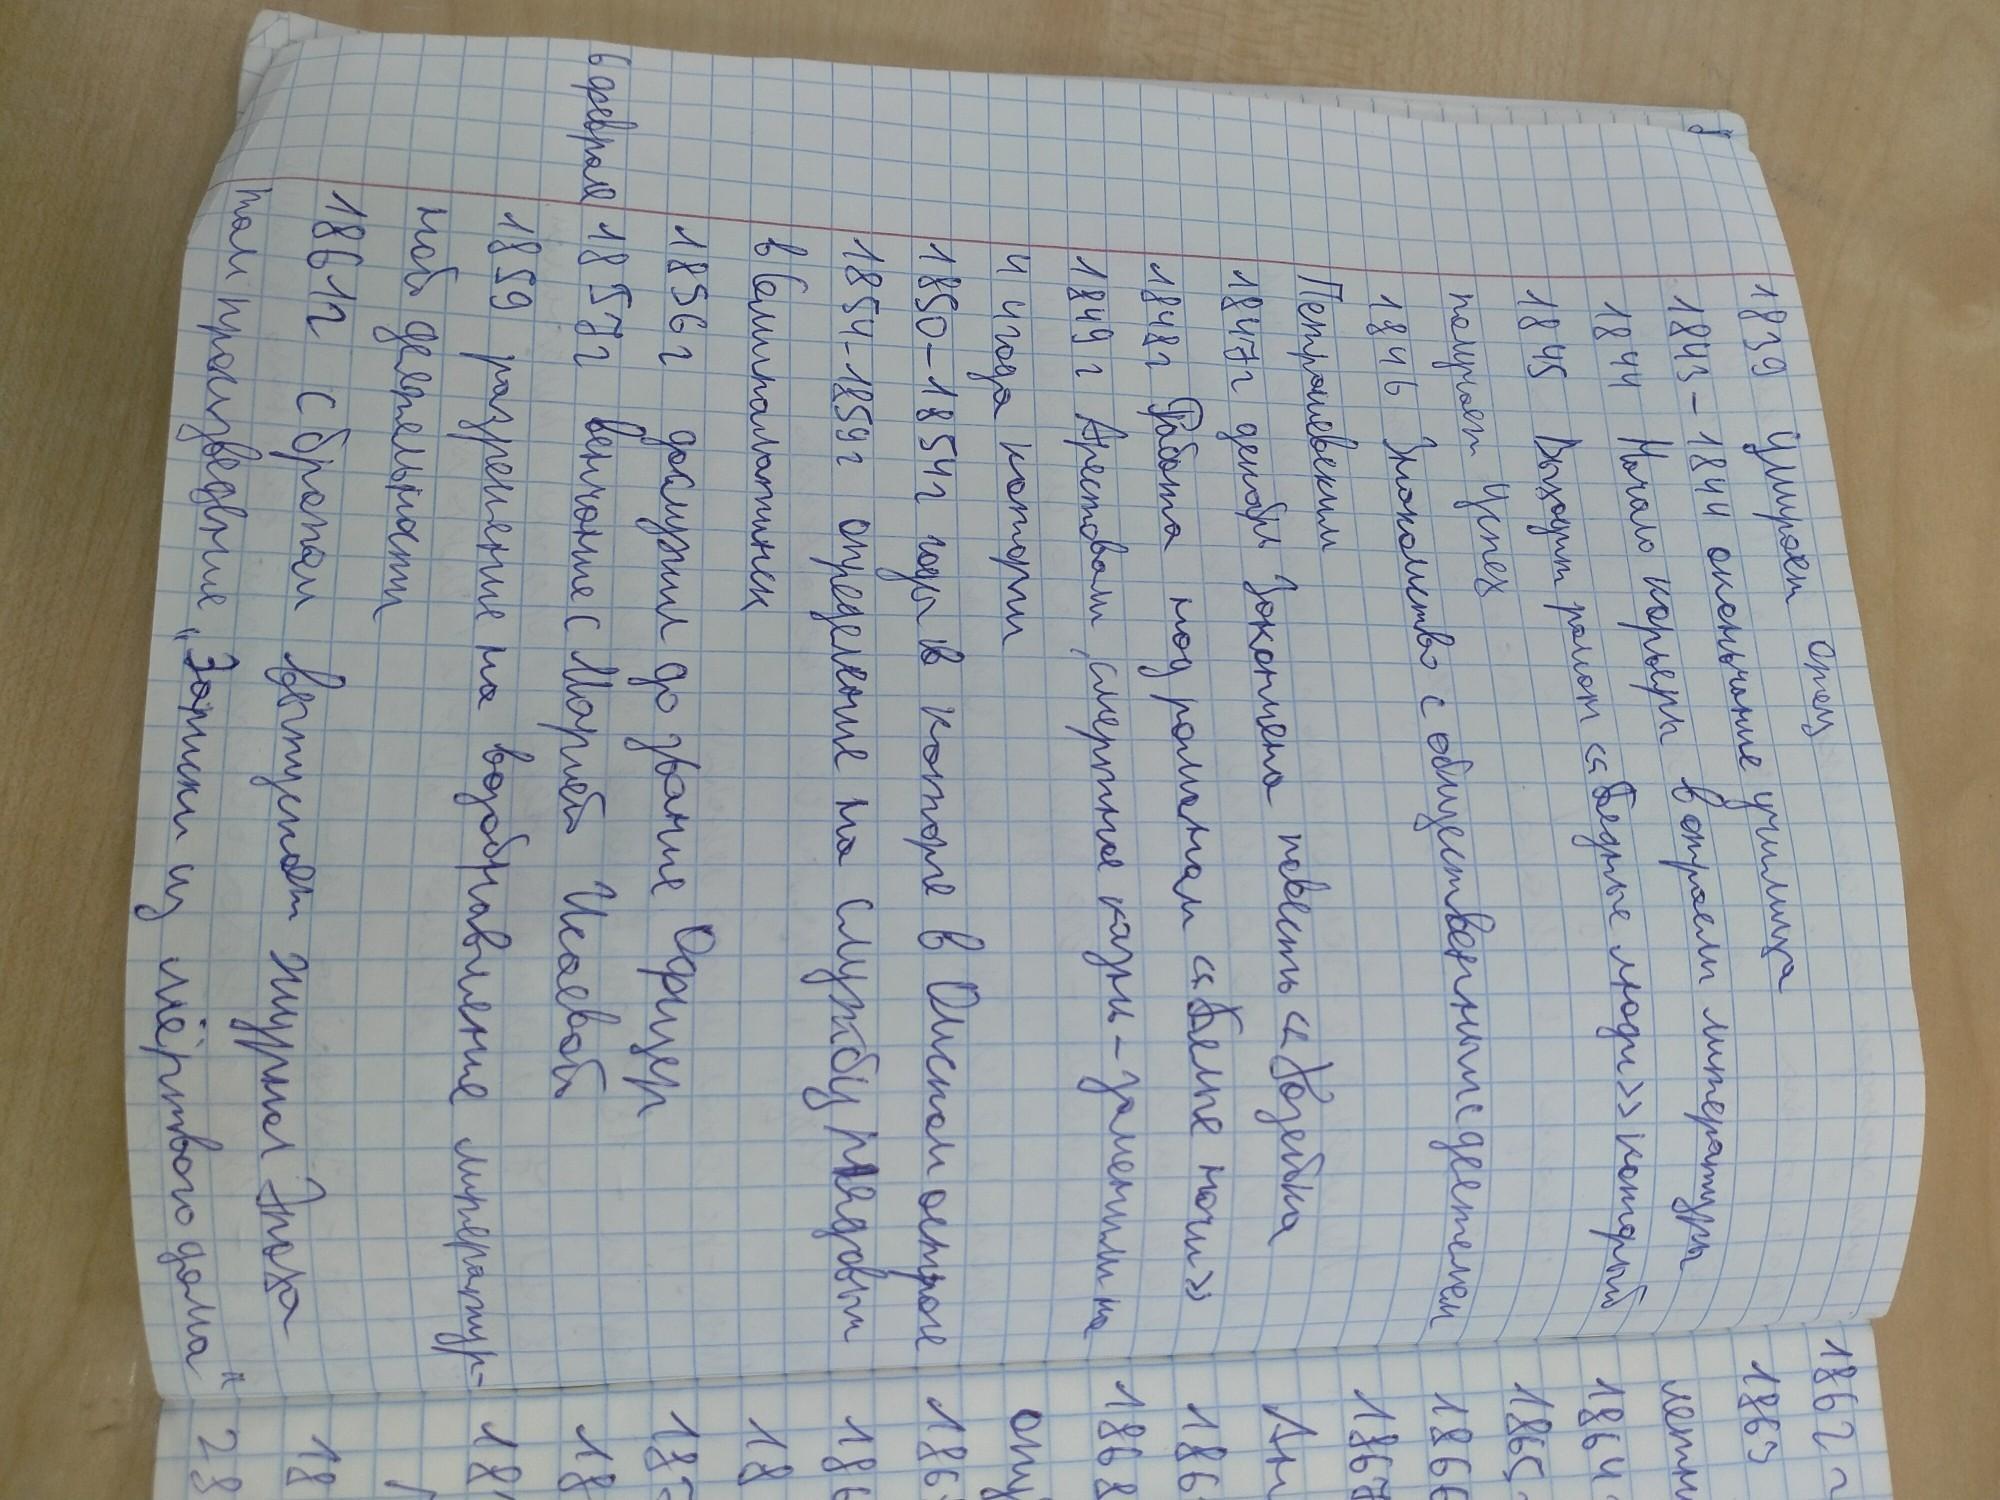 1839 Умирает отец
1843-1844 окончание училища
1844 Начало карьеры в отрасли литературы
1845 Выходит роман «Бедные люди» который
получает успех
1846 Знакомство с общественным деятелем
Петрашевским
1847г декабрь Закончена повесть «Хозейка
1848г Работа над романом «Белые ночи»
1849г Арестовали, смертная казнь-заменили на
4 года каторги
1850-1854г годы в каторге в Омском остроге
1854-1859г определение на службу рядовым
в Семипалатинск
1856г дослужил до звание Офицер
6 февраля 1857г венчание с Марией Исаевой
1859 разрешение на возобнавление литератур-
ной деятельности
1861г С братом выпускает журнал Эпоха
там произведение "Записки из мёртвого дома"
1862г
1863
летн
1864
1865
1866
1867
Ан
186
1868
опу
186
186
18
187
18
18
18
28